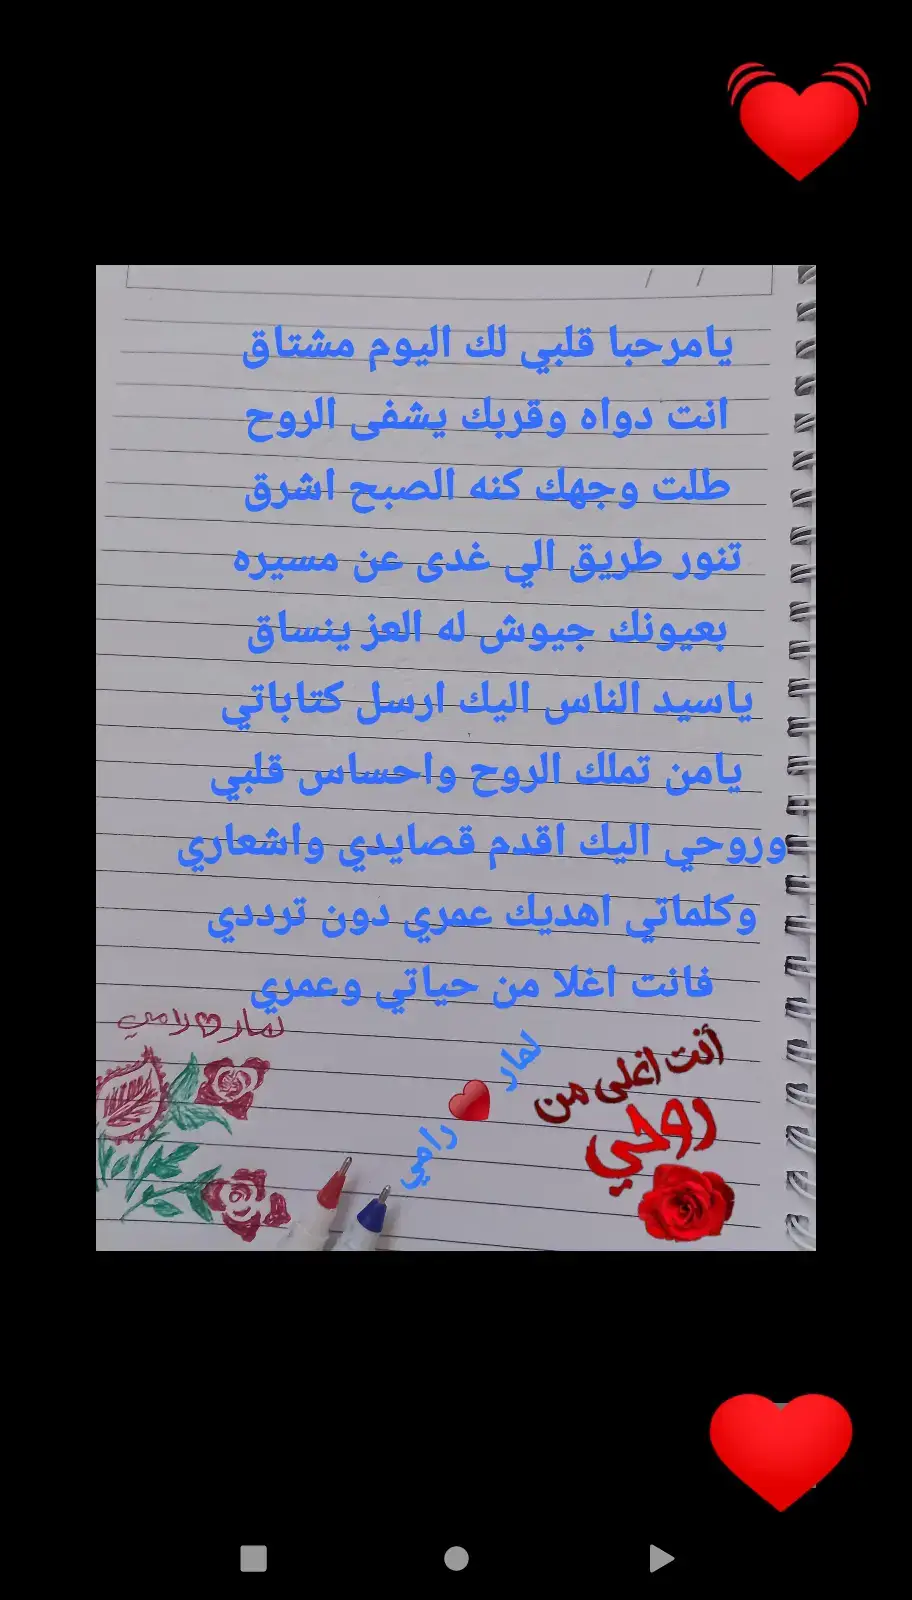 يامرحبا قلبي لك اليوم مشتاق
انت دواه وقربك يشفى الروح
طلت وجهك كنه الصبح اشرق
تنور طريق الي غدى عن مسيره
بعيونك جيوش له العز ينساق
ياسيد الناس اليك ارسل كتاباتي
يامن تملك الروح واحساس قلبي
وروحي اليك اقدم قصايدي واشعاري
وكلماتي اهديك عمري دون ترددي
فانت اغلا من حياتي وعمري
لمار رامي
لمار
رامي
أنت اغلى من
روحي